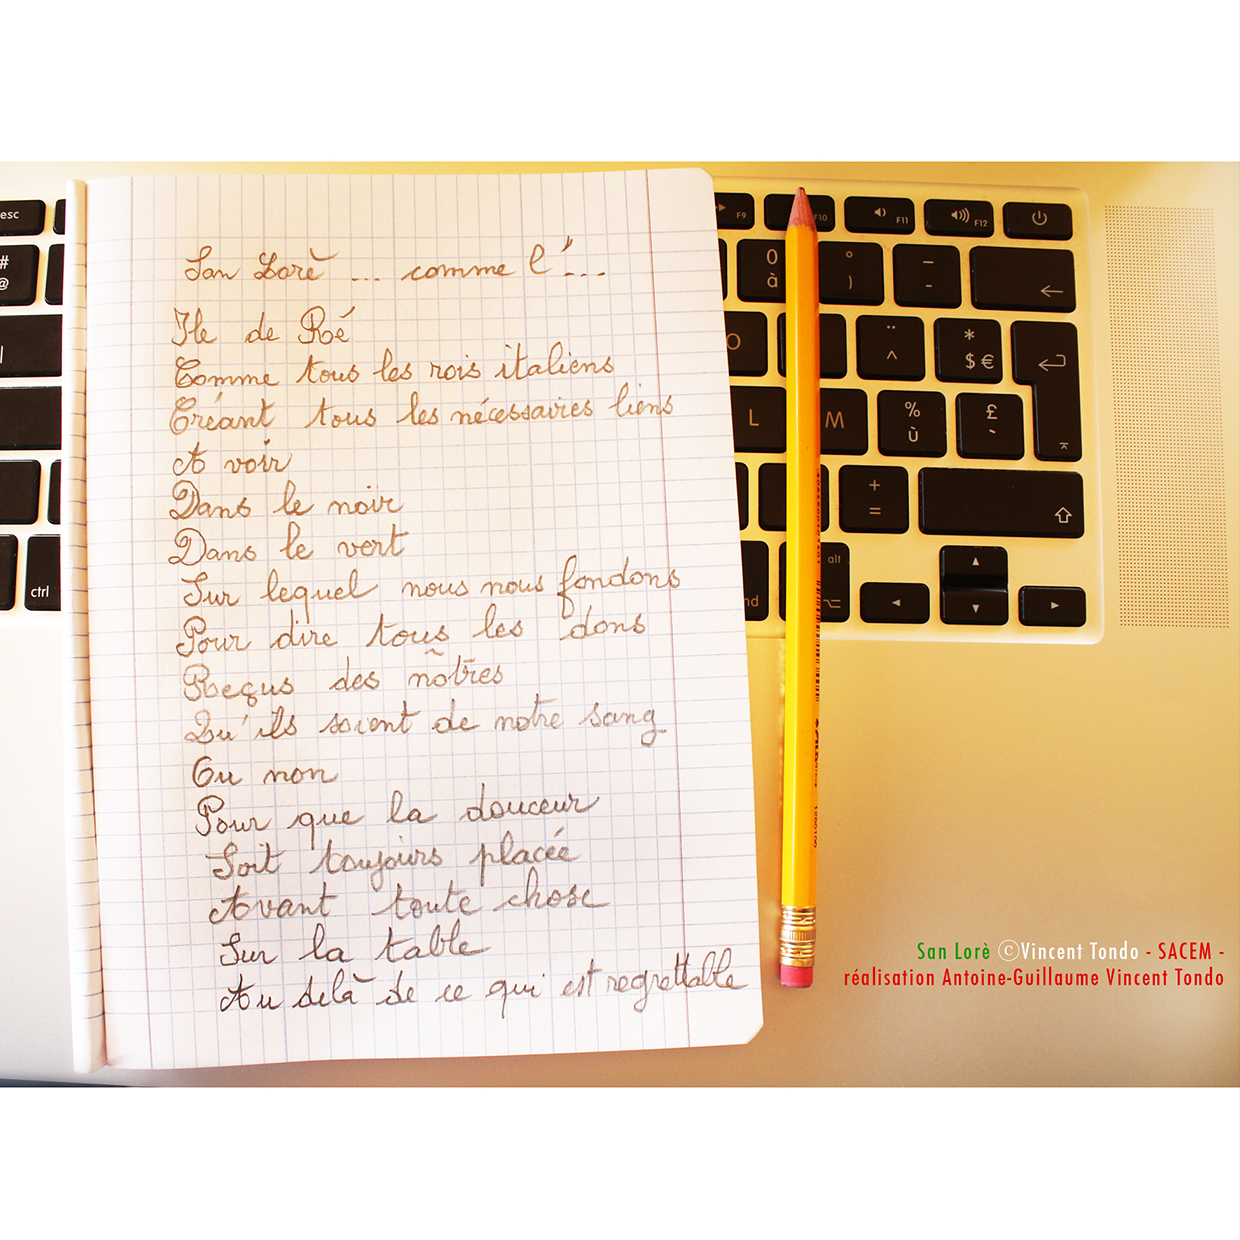 San Lorè ... comme l'...
Ile de Ré
Comme tous les rois italiens
Créant tous les nécessaires liens
A voir
Dans le noir
Dans le vert
Sur lequel nous nous fondons
Pour dire tous les dons
Reçus des nôtres
Qu'ils soient de notre sang
Ou non
Pour que la douceur
Soit toujours placée
Avant toute chose
Sur la table
Au delà de ce qui est regrettable
esc
#
@
ctrl
F9
F10
F11
F12
0
à
°
)
-
_
O
¨
^
*
$ €
L
M
%
ù
£
`
+
=
alt
San Lorè ©Vincent Tondo - SACEM -
réalisation Antoine-Guillaume Vincent Tondo